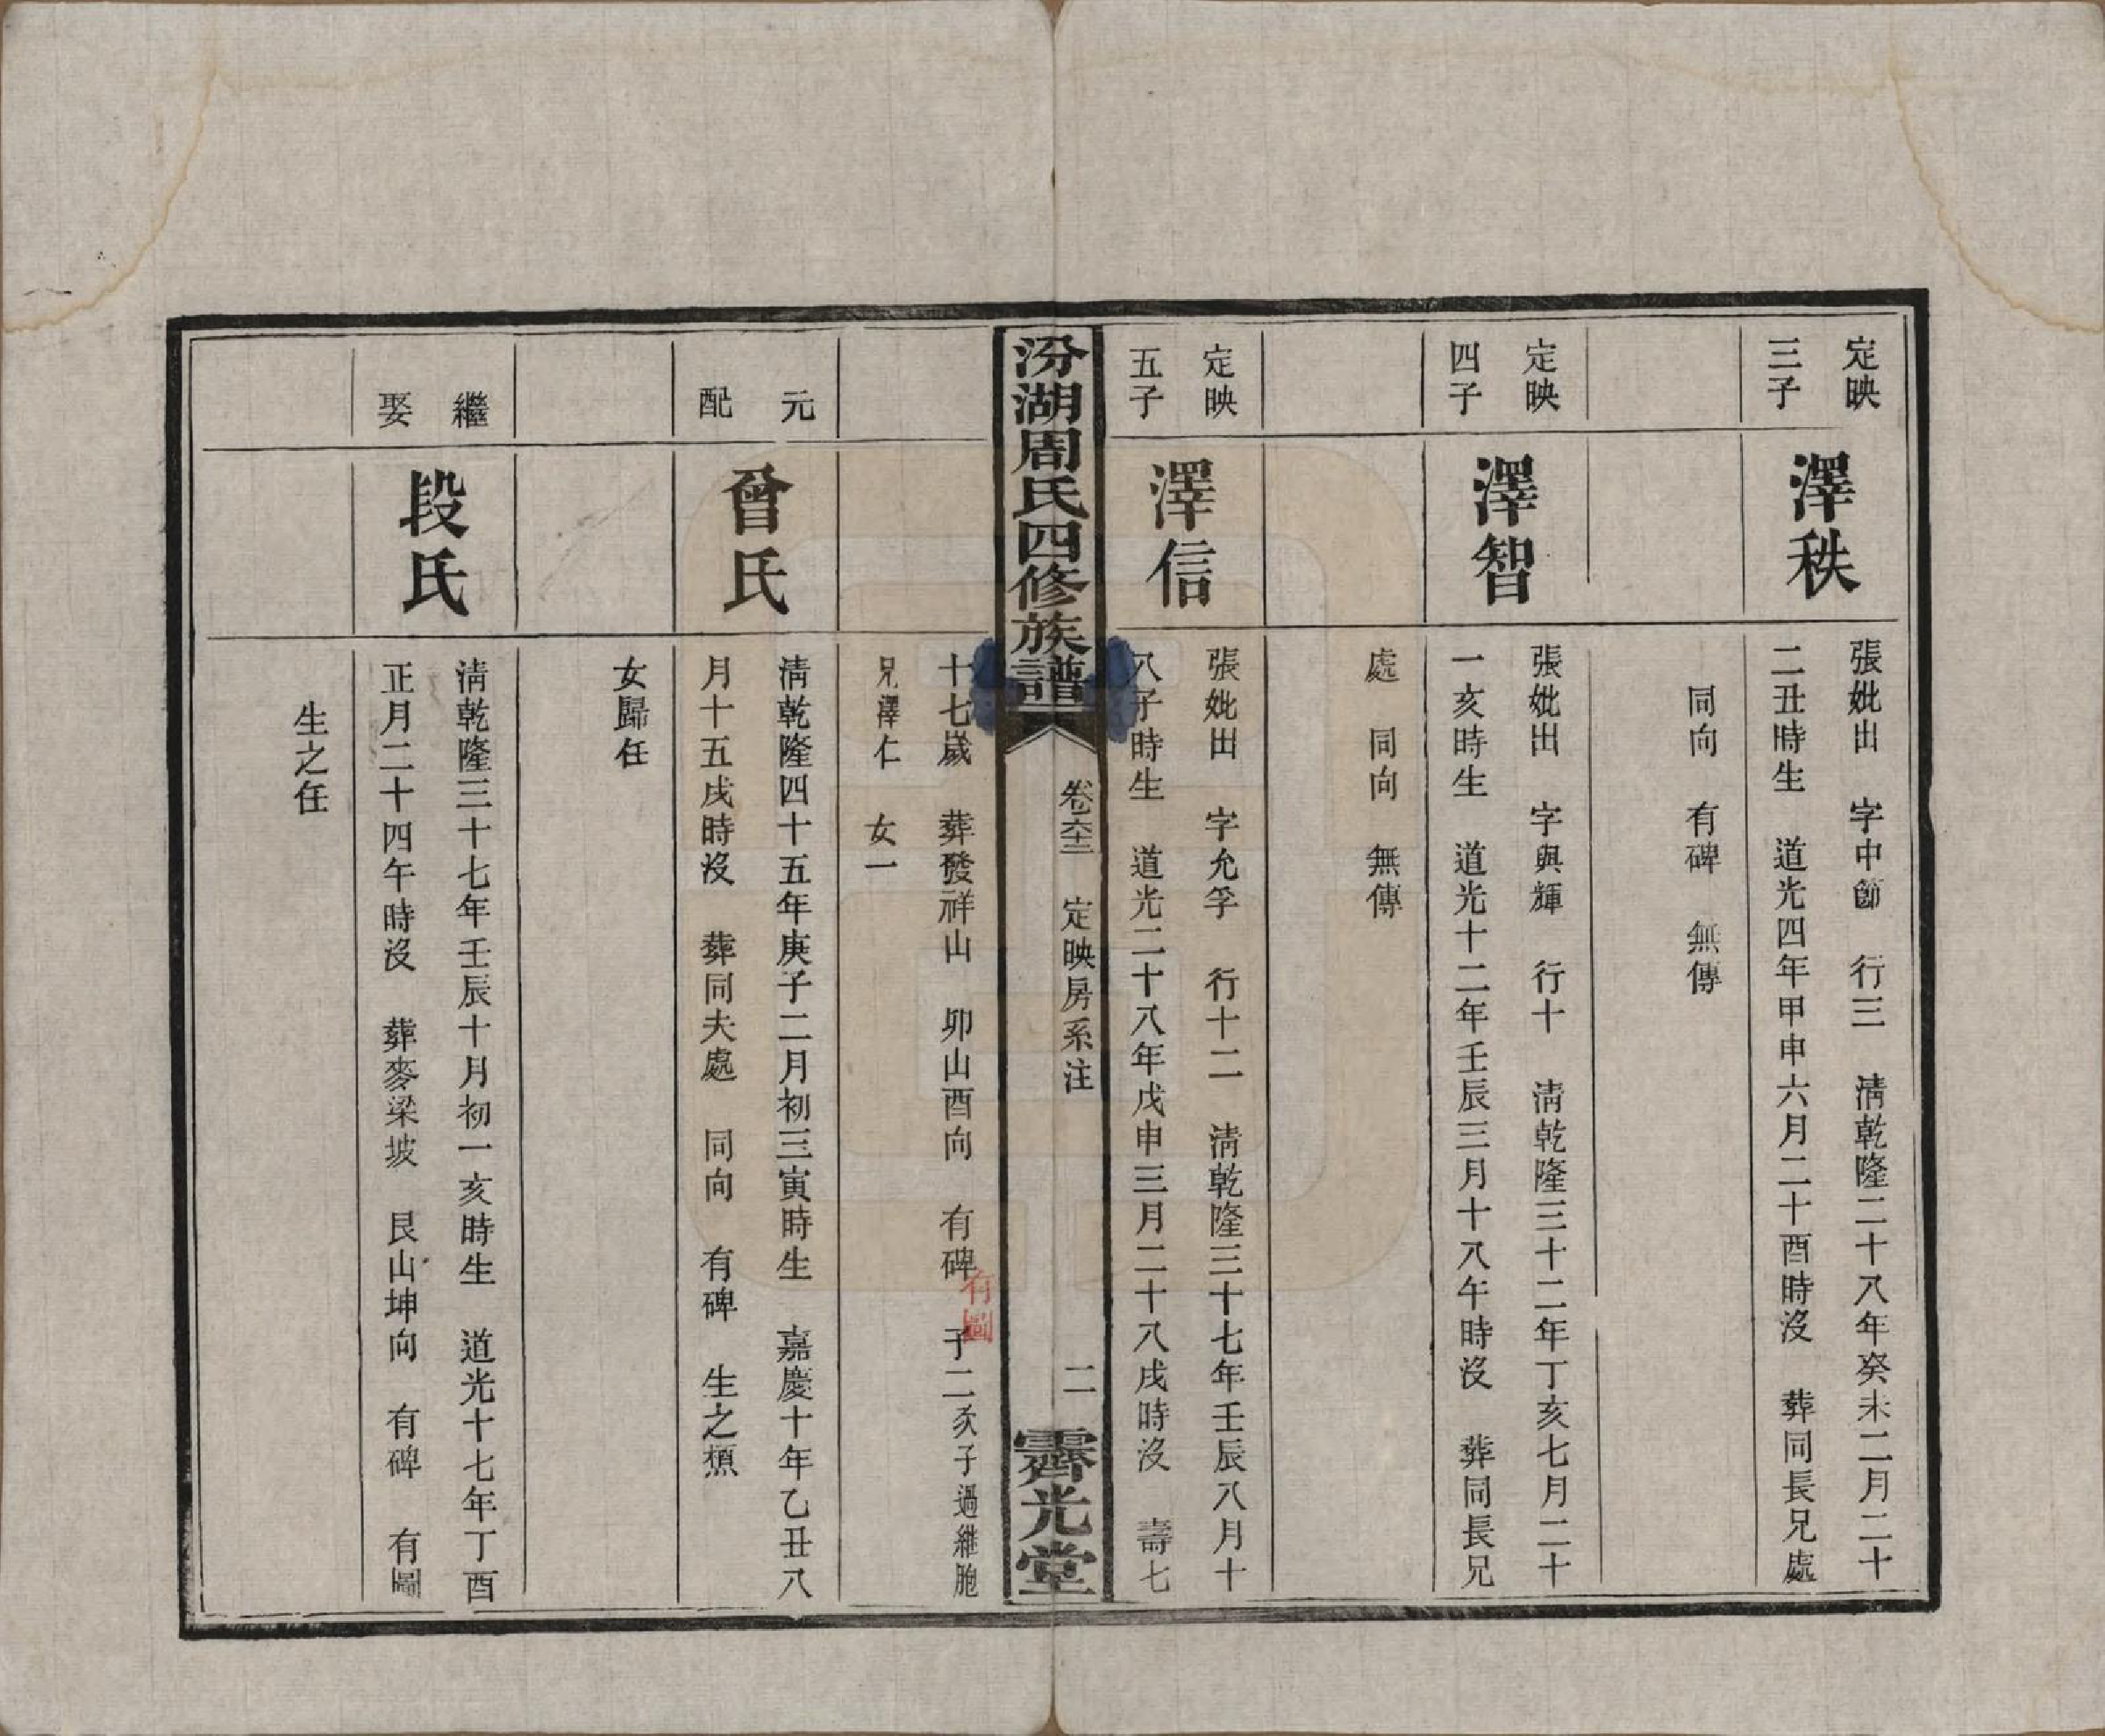 定映
三子
澤秩
張妣出　字中節　行三　清乾隆二十八年癸未二月二十
二丑時生　道光四年甲申六月二十酉時沒　葬同長兄處
同向　有碑　無傳
定映
四子
澤智
張妣出　字與輝　行十　清乾隆三十二年丁亥七月二十
一亥時生　道光十二年壬辰三月十八午時沒　葬同長兄
處　同向　無傳
定映
五子
澤信
張妣出　字允孚　行十二　清乾隆三十七年壬辰八月十
八子時生　道光二十八年戊申三月二十八戌時沒　壽七
汾湖周氏四修族譜
卷六十二　定映房系注
二
霽光堂
十七歲　葬發祥山　卯山酉向　有碑　子二次子過繼胞
有圖
兄澤仁　女一
元
配
曾氏
清乾隆四十五年庚子二月初三寅時生　嘉慶十年乙丑八
月十五戌時沒　葬同夫處　同向　有碑　生之槓
女歸任
繼
娶
段氏
清乾隆三十七年壬辰十月初一亥時生　道光十七年丁酉
正月二十四午時沒　葬麥梁坡　艮山坤向　有碑　有圖
生之任